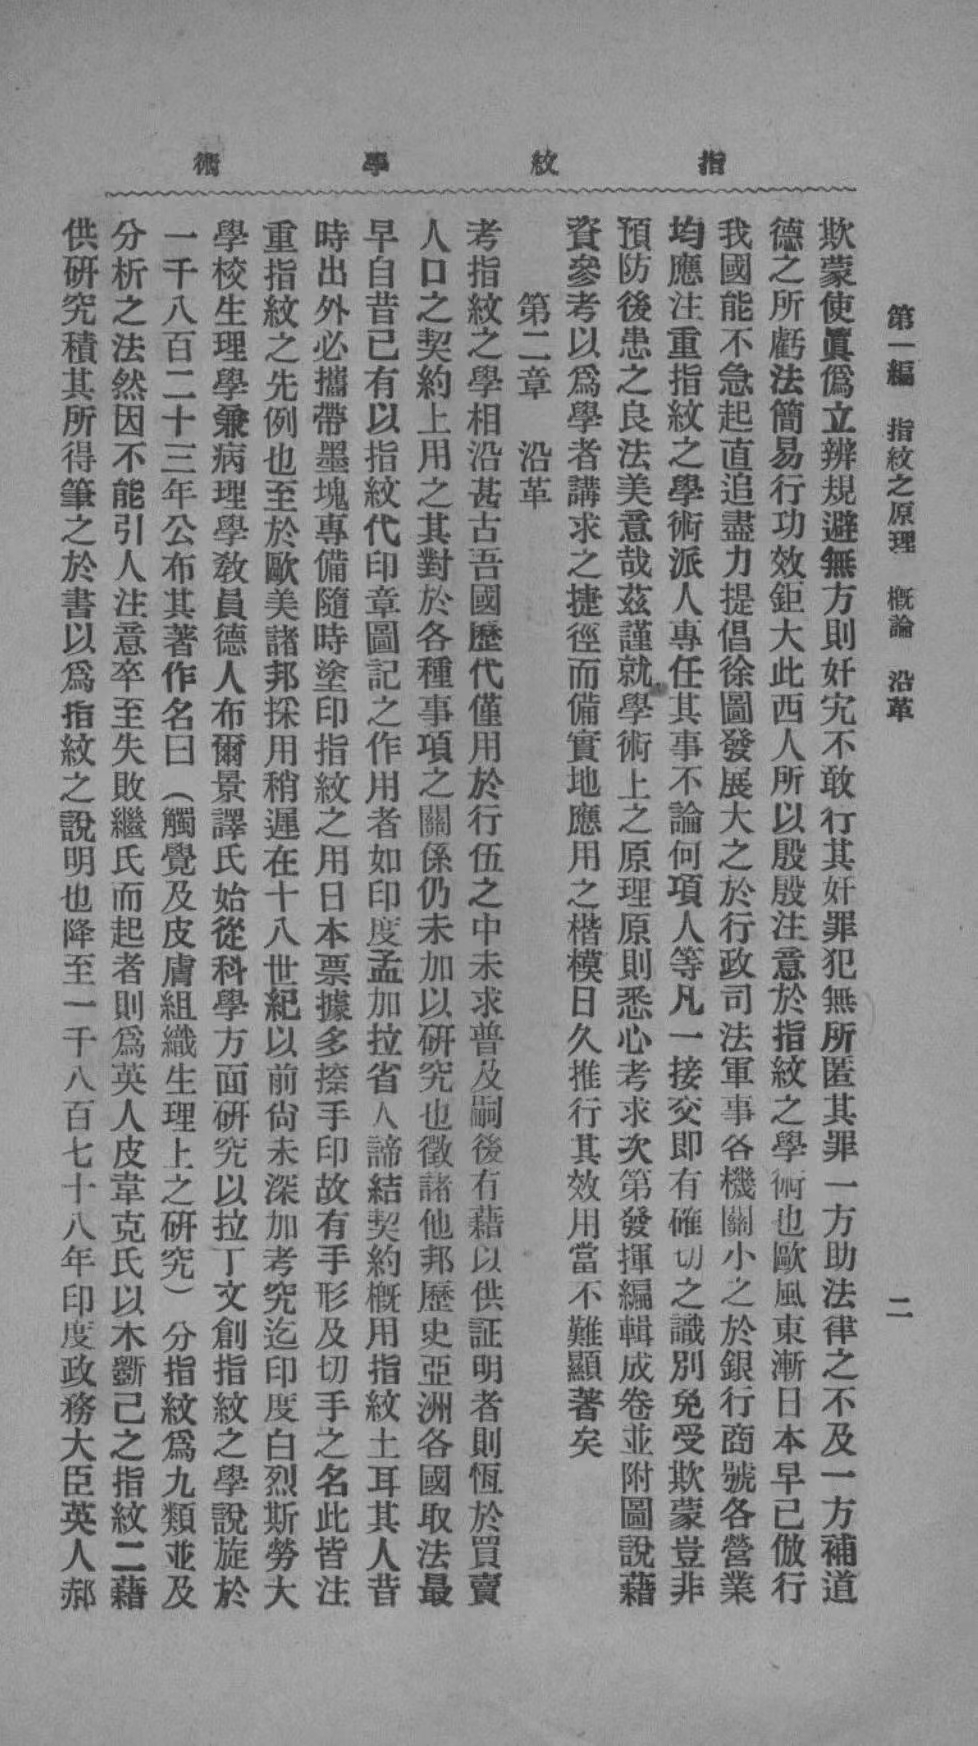 指紋學術
第一編　指紋之原理　概論　沿革
二
欺蒙使眞僞立辨規避無方則奸宄不敢行其奸罪犯無所匿其罪一方助法律之不及一方補道
德之所虧法簡易行功效鉅大此西人所以殷殷注意於指紋之學術也歐風東漸日本早已倣行
我國能不急起直追盡力提倡徐圖發展大之於行政司法軍事各機關小之於銀行商號各營業
均應注重指紋之學術派人專任其事不論何項人等凡一接交即有確切之識別免受欺蒙豈非
預防後患之良法美意哉茲謹就學術上之原理原則悉心考求次第發揮編輯成卷並附圖說藉
資參考以爲學者講求之捷徑而備實地應用之楷模日久推行其效用當不難顯著矣
第二章　沿革
考指紋之學相沿甚古吾國歷代僅用於行伍之中未求普及嗣後有藉以供証明者則恆於買賣
人口之契約上用之其對於各種事項之關係仍未加以研究也徵諸他邦歷史亞洲各國取法最
早自昔已有以指紋代印章圖記之作用者如印度孟加拉省人諦結契約概用指紋土耳其人昔
時出外必攜帶墨塊專備隨時塗印指紋之用日本票據多捺手印故有手形及切手之名此皆注
重指紋之先例也至於歐美諸邦採用稍遲在十八世紀以前尙未深加考究迄印度白烈斯勞大
學校生理學兼病理學敎員德人布爾景譯氏始從科學方面研究以拉丁文創指紋之學說旋於
一千八百二十三年公布其著作名曰（觸覺及皮膚組織生理上之研究）分指紋爲九類並及
分析之法然因不能引人注意卒至失敗繼氏而起者則爲英人皮韋克氏以木斵己之指紋二藉
供研究積其所得筆之於書以爲指紋之說明也降至一千八百七十八年印度政務大臣英人郝